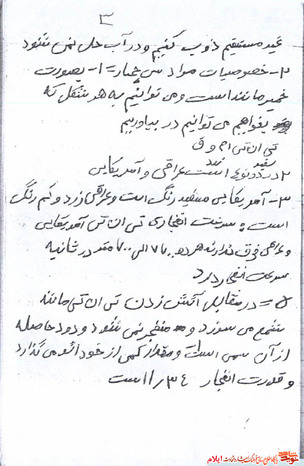 ۳
غیر مستقیم ذوب کنیم و در آب حل نمی شود
۲- خصوصیات مواد سی چهار ۱- بصورت
خمیر مانند است و می توانیم به هر شکل که
بخواهیم می توانیم در بیاوریم
تی ان تی ام و ق
۲ در دو نوع است عراقی و آمریکایی
۳- آمریکایی سفید رنگ است و عراقی زرد و کم رنگ
است سرعت انفجاری تی ان تی آمریکایی
و عراقی فرق ندارند هر دو ۷۰۰۰ متر در ثانیه
سرعت انفجار دارد
۵= در مقابل آتش زدن تی ان تی مانند
شمع می سوزد و منفجر نمی شود و دود حاصله
از آن سمی است و مقدار کمی از خود اثر می گذارد
و قدرت انفجار ۱/۳۴ است
ایلام